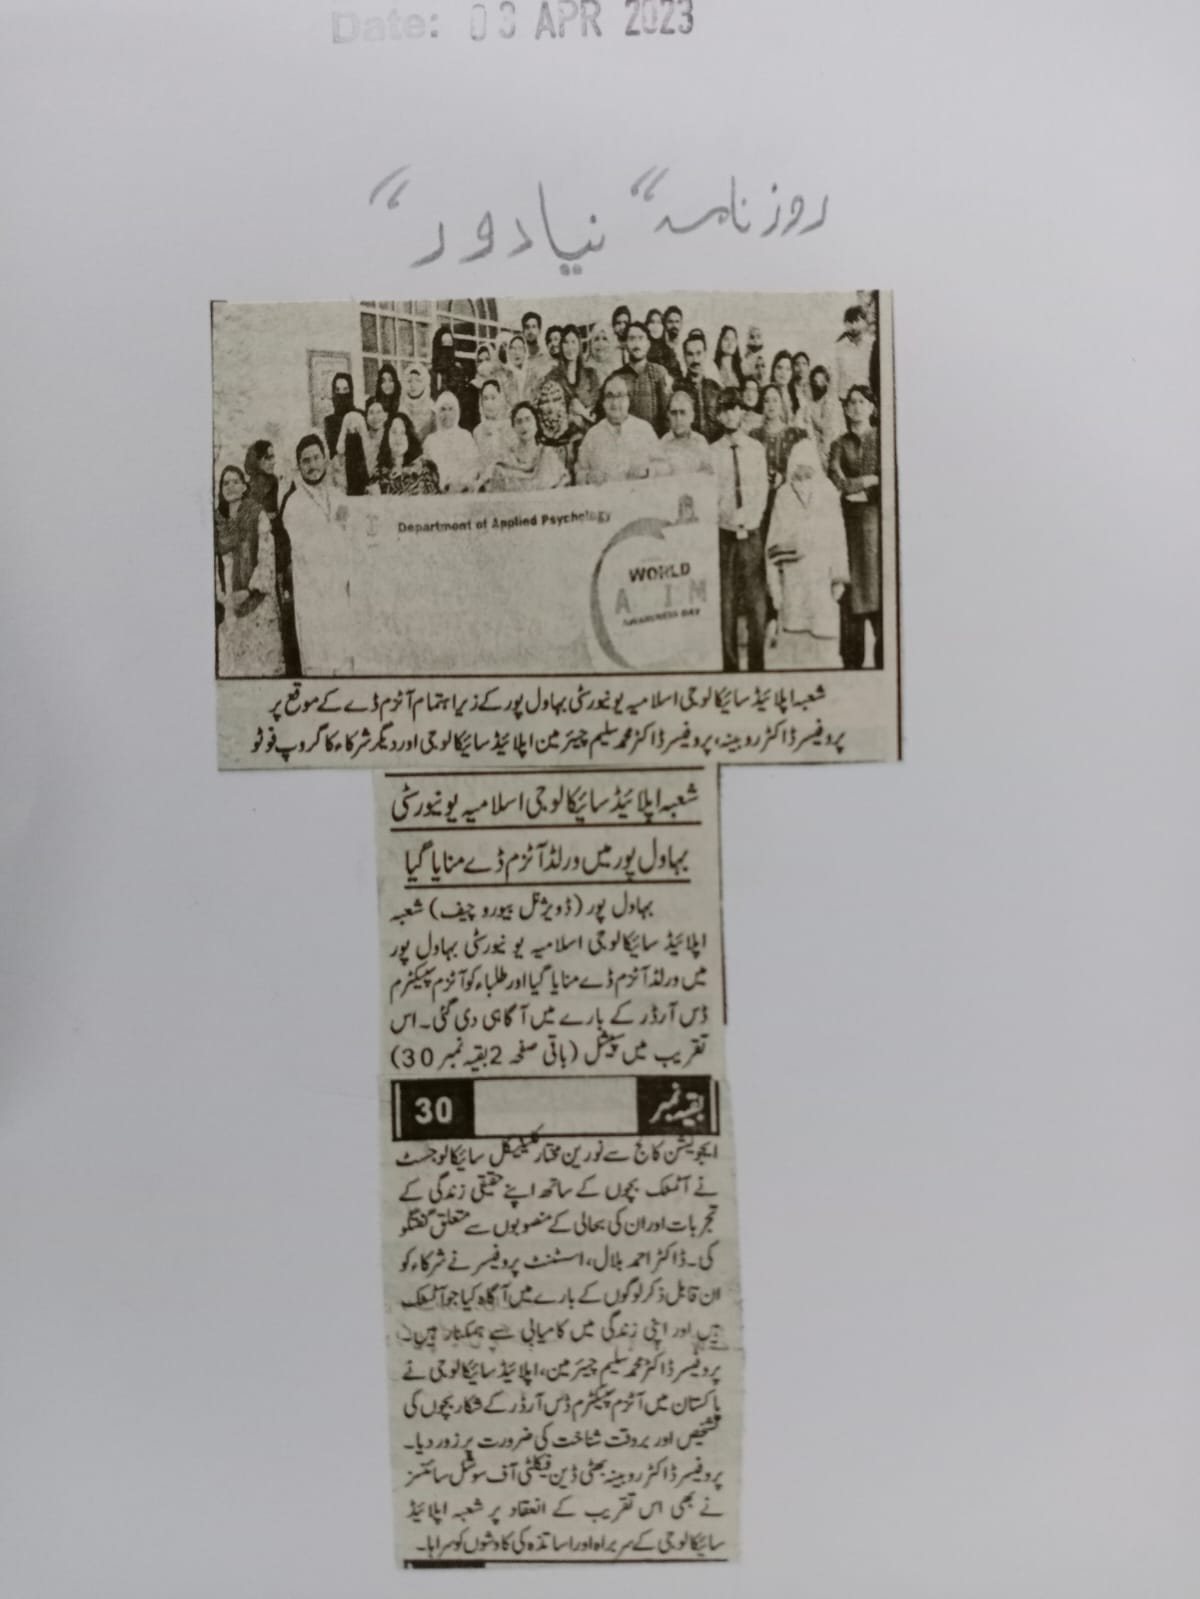 Date: 03 APR 2023
روزنامہ "نیا دور"
Department of Applied Psychology
WORLD
AWARENESS DAY
شعبہ اپلائیڈ سائیکالوجی اسلامیہ یونیورسٹی بہاول پور کے زیر اہتمام آٹزم ڈے کے موقع پر
پروفیسر ڈاکٹر روبینہ، پروفیسر ڈاکٹر محمد سلیم چیئرمین اپلائیڈ سائیکالوجی اور دیگر شرکاء کا گروپ فوٹو
شعبہ اپلائیڈ سائیکالوجی اسلامیہ یونیورسٹی
بہاول پور میں ورلڈ آٹزم ڈے منایا گیا
بہاول پور (ڈویژنل بیورو چیف) شعبہ
اپلائیڈ سائیکالوجی اسلامیہ یونیورسٹی بہاول پور
میں ورلڈ آٹزم ڈے منایا گیا اور طلباء کو آٹزم سپیکٹرم
ڈس آرڈر کے بارے میں آگاہی دی گئی۔ اس
تقریب میں سپیشل (باقی صفحہ 2 بقیہ نمبر 30)
بقیہ نمبر 30
ایجوکیشن کالج سے نورین مختار کلینیکل سائیکالوجسٹ
نے آٹسٹک بچوں کے ساتھ اپنے حقیقی زندگی کے
تجربات اور ان کی بحالی کے منصوبوں سے متعلق گفتگو
کی۔ ڈاکٹر احمد بلال، اسسٹنٹ پروفیسر نے شرکاء کو
ان قابل ذکر لوگوں کے بارے میں آگاہ کیا جو آٹسٹک
ہیں اور اپنی زندگی میں کامیابی سے ہمکنار ہیں۔
پروفیسر ڈاکٹر محمد سلیم چیئرمین، اپلائیڈ سائیکالوجی نے
پاکستان میں آٹزم سپیکٹرم ڈس آرڈر کے شکار بچوں کی
تشخیص اور بروقت شناخت کی ضرورت پر زور دیا۔
پروفیسر ڈاکٹر روبینہ بھٹی ڈین فیکلٹی آف سوشل سائنسز
نے بھی اس تقریب کے انعقاد پر شعبہ اپلائیڈ
سائیکالوجی کے سربراہ اور اساتذہ کی کاوشوں کو سراہا۔